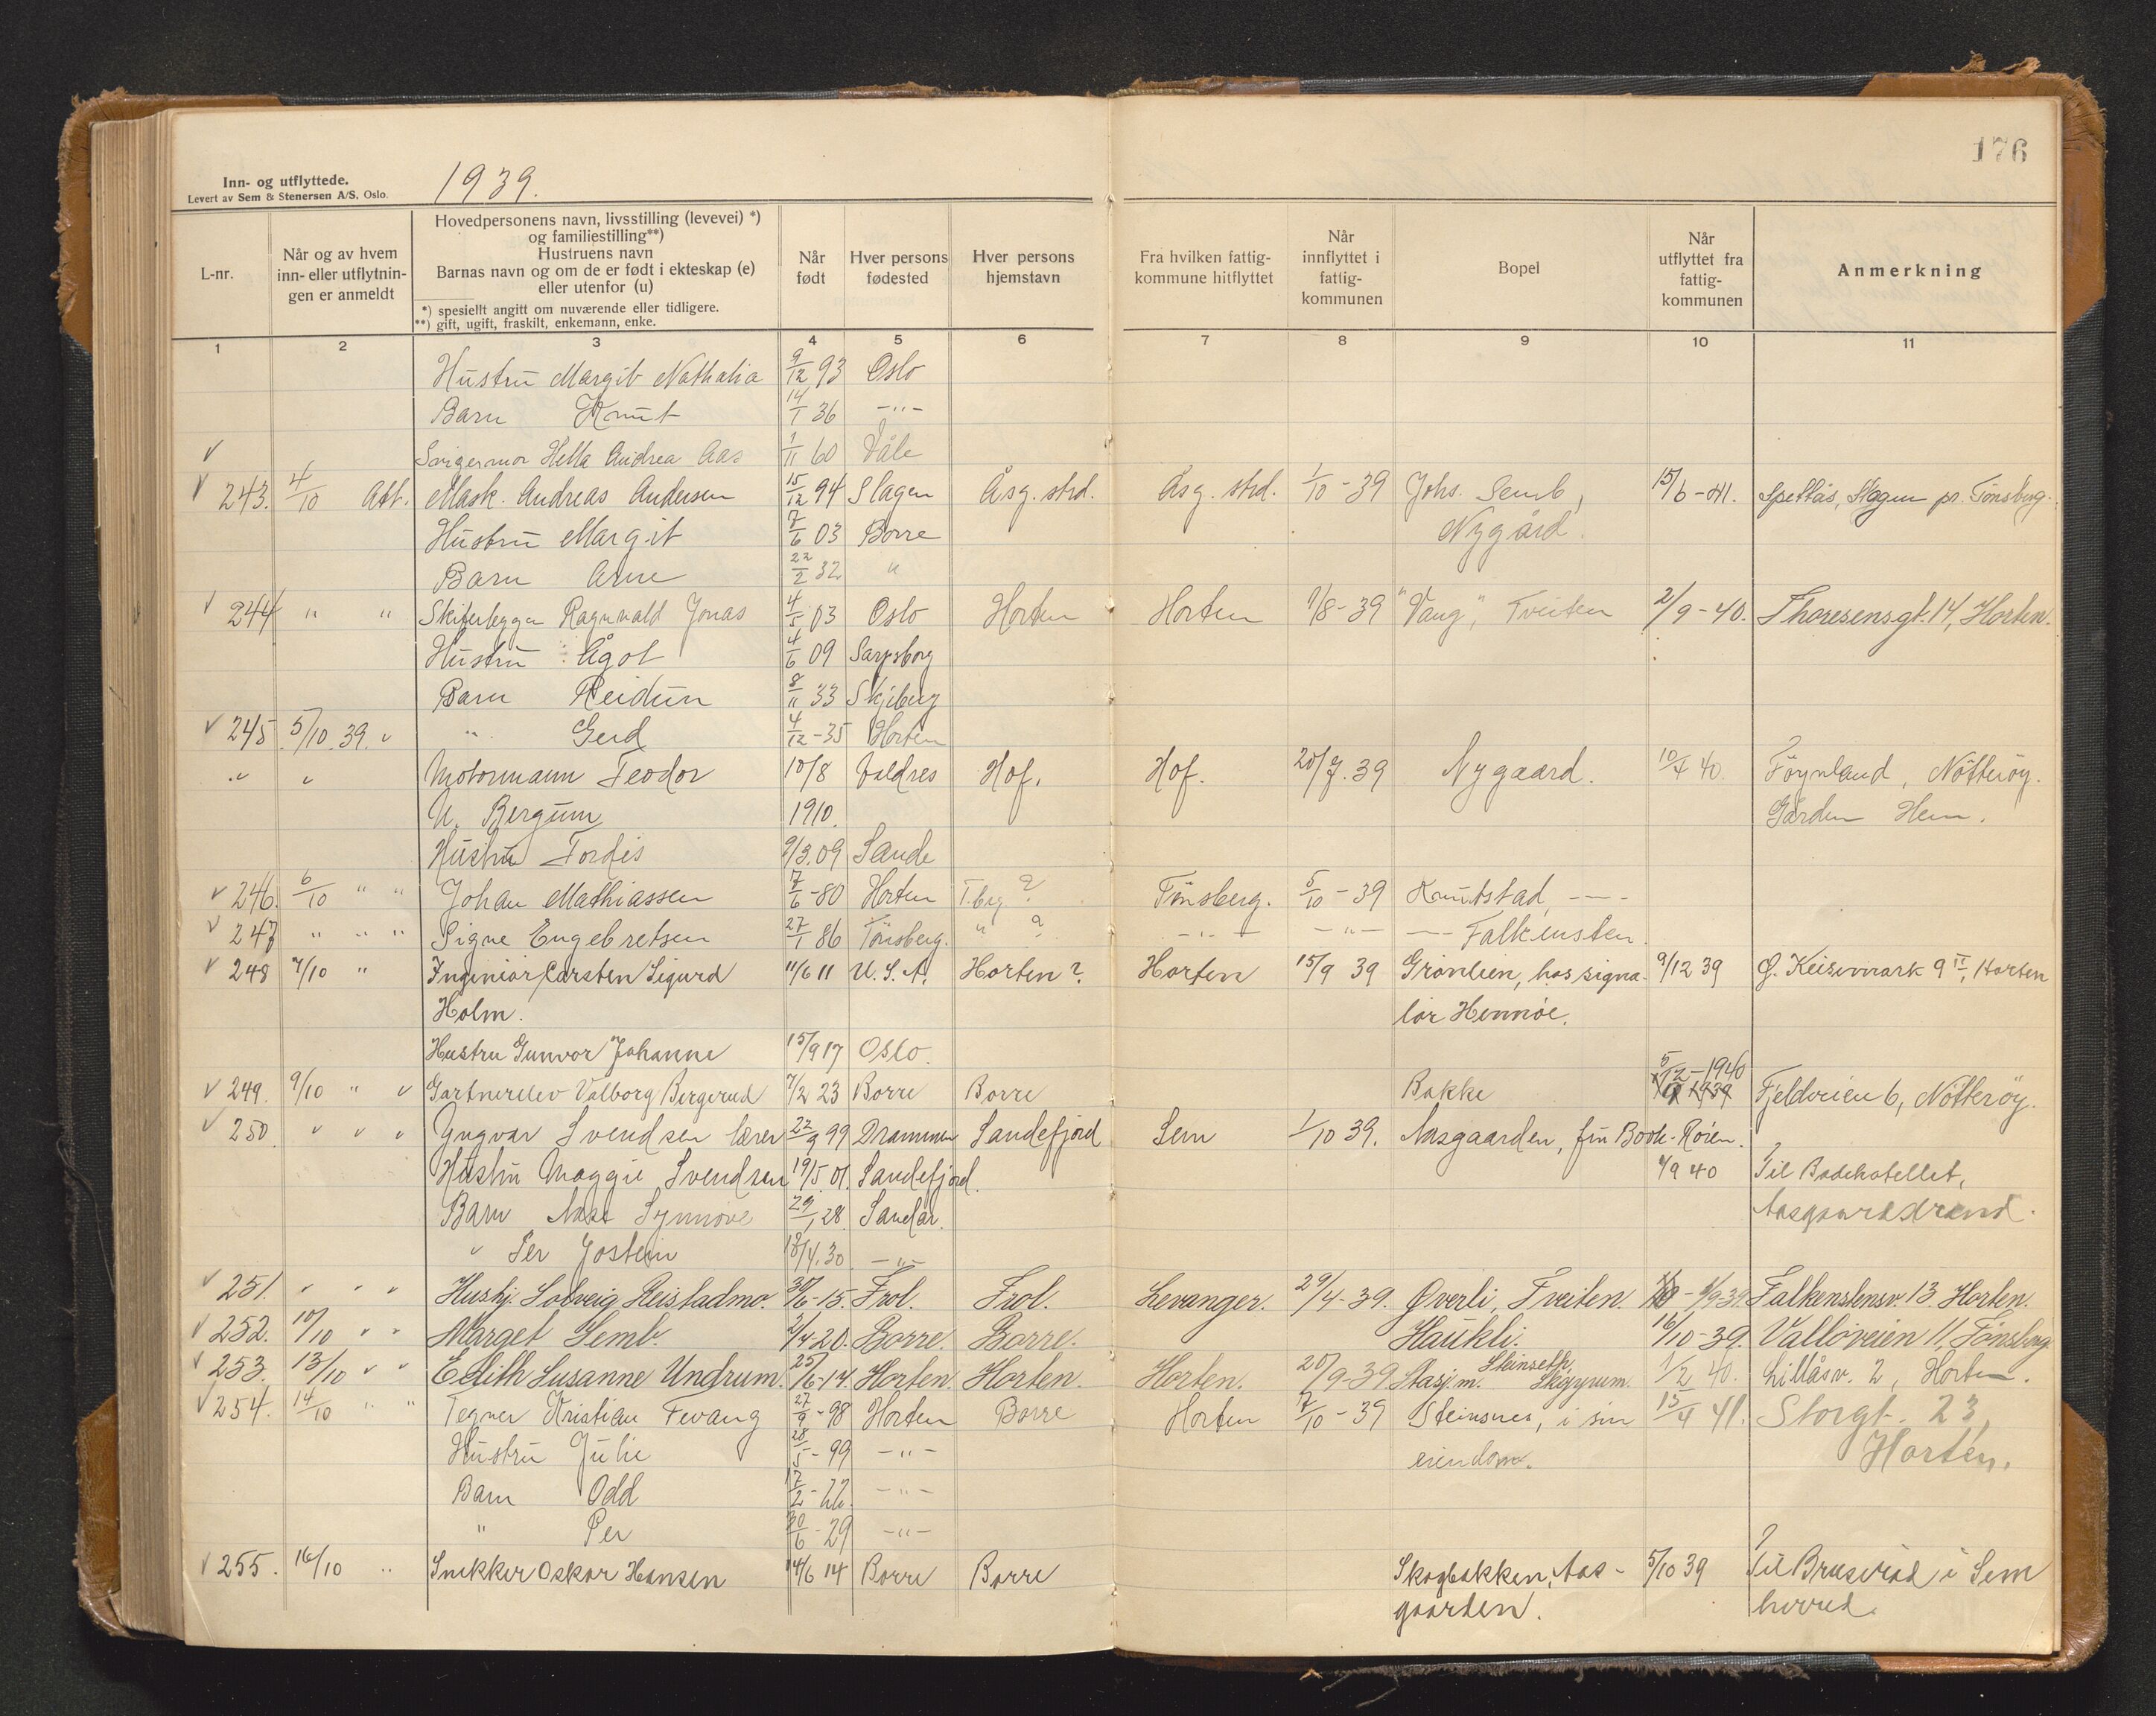 176
Inn- og utflyttede.
Levert av Sem & Stenersen A/S, Oslo.
1939.
L-nr.
Når og av hvem inn- eller utflytnin-gen er anmeldt
Hovedpersonens navn, livsstilling (levevei) *)
og familiestilling**)
Hustruens navn
Barnas navn og om de er født i ekteskap (e)
eller utenfor (u)
*) spesiellt angitt om nuværende eller tidligere.
**) gift, ugift, fraskilt, enkemann, enke.
Når født
Hver persons fødested
Hver persons hjemstavn
Fra hvilken fattig-kommune hitflyttet
Når innflyttet i fattig-kommunen
Bopel
Når utflyttet fra fattig-kommunen
Anmerkning
1 2 3 4 5 6 7 8 9 10 11
Hustru Margit Nathalia 9/12 93 Oslo
Barn Knut 14/1 36 -"-
Svigermor Hella Andrea Aas 1/11 60 Våle
243. 4/10 Att. Mask. Andreas Andersen 15/12 94 Slagen Åsg. strd. Åsg. strd. 1/10-39 Johs. Semb, 15/6-41. Spettås, Slagen pr. Tönsberg.
Hustru Margit 7/6 03 Borre Nygård.
Barn Arne 22/2 32 "
244 " " Ragnvald Jonas 4/5 03 Oslo Horten Horten 1/8-39 "Vang", Tveiten 2/9-40. Thoresensgt. 14, Horten.
Hustru Ågot 4/6 09 Sarpsborg
Barn Reidun 8/11 33 Skjeberg
245. 5/10.39. " " Gerd 4/12-35 Horten
" " Motormann Teodor 10/8 Valdres Hof. Hof. 20/7.39 Nygaard. 10/4 40. Föynland, Nötteröy.
N. Bergum 1910. Gården Hem.
Hustru Tordis 9/3.09 Sande
246. 6/10 " " Johan Mathiassen 7/6-80 Horten T.brg ? Tönsberg. 5/10-39 Knutstad, ---
247 " " " Signe Engebretsen 27/1 86 Tönsberg. " ? -"- -"- --- Falkensten.
248 7/10 " Ingeniør Carsten Sigurd 11/6 11 U.S.A. Horten? Horten 15/9 39 Grønlien, hos signa- 9/12 39 G. Keisemark 9 II, Horten
Holm. lør Hennøe.
Hustru Gunvor Johanne 15/9 17 Oslo.
5/12-1940
249. 9/10 " " Gartnerelev Valborg Bergerud 7/2 23 Borre Borre Bakke Fjeldveien 6, Nötteröy.
250 " " " Yngvar Svendsen lærer 22/9 99 Drammen Sandefjord Sem 1/10 39. Aasgaarden, fru Book-Röien.
Hustru Maggie Svendsen 19/5.01. Sandefjord. 1/9 40 Til Badehotellet,
Barn Aase Synnöve 29/1.28. Sandar. Aasgaardstrand.
" Per Jostein 18/4.30. -"-
251. " " " Hushj. Solveig Reistadmo. 30/6-15. Frol. Frol. Levanger. 29/4-39. Øverli, Tveiten. Falkenstensv. 13. Horten.
252. 10/10 " " Marget Semb. 2/4-20. Borre. Borre. Haukli. 16/10-39. Vallöveien 11, Tönsberg
253. 13/10 " " Edith Susanne Undrum. 25/6-14. Horten. Horten. Horten. 20/9-39 Stasj.m. Steinseth, Skoppum. 1/2 40. Lillåsv. 2, Horten.
254. 14/10 " " Tegner Kristian Tevang 27/9-98 Horten Borre Horten 7/10-39 Steinsnes, i sin 15/4 41. Storgt. 23,
Hustru Julie 28/5-99 -"- eiendom. Horten.
Barn Odd 17/2-22. -"-
" Per 20/6-29 -"-
255. 16/10 " Snekker Oskar Hansen 14/6 14 Borre Borre Skogbakken, Aas- 5/10 39 Til Bruserød i Sem
gaarden. herred.